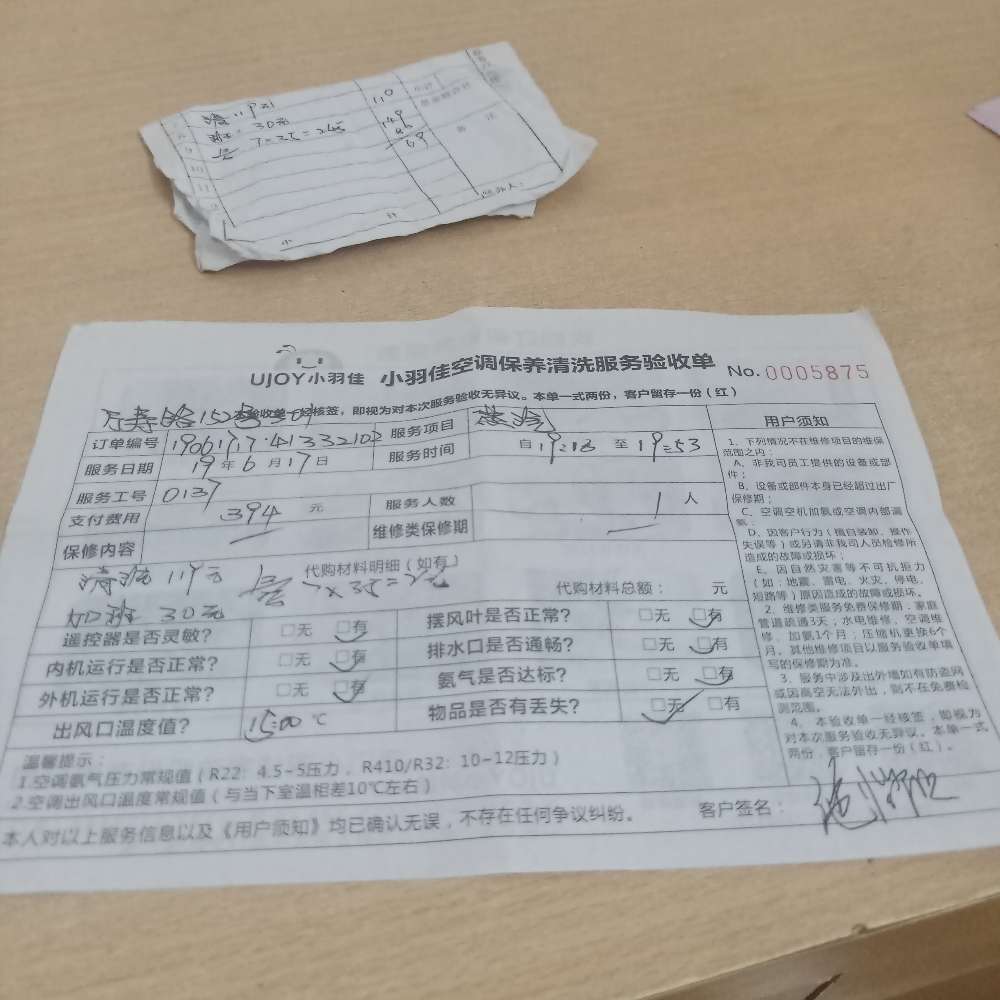 110
30元
7×35=245
149
小 计
UJOY小羽佳 小羽佳空调保养清洗服务验收单 No. 0005875
核签，即视为对本次服务验收无异议。本单一式两份，客户留存一份（红）
订单编号 服务项目
服务日期 19年6月17日 服务时间 自19:18 至19:53
服务工号 0137
支付费用 394 元 服务人数 1 人
保修内容 维修类保修期
代购材料明细（如有）
清洗119元 代购材料总额： 元
加班30元
遥控器是否灵敏？ □无 □有 摆风叶是否正常？ □无 □有
内机运行是否正常？ □无 □有 排水口是否通畅？ □无 □有
外机运行是否正常？ □无 □有 氨气是否达标？ □无 □有
出风口温度值？ 15:00 ℃ 物品是否有丢失？ □无 □有
温馨提示：
1.空调氨气压力常规值（R22：4.5-5压力，R410/R32：10-12压力）
2.空调出风口温度常规值（与当下室温相差10℃左右）
本人对以上服务信息以及《用户须知》均已确认无误，不存在任何争议纠纷。
客户签名：
用户须知
1、下列情况不在维修项目的维保
范围之内：
A、非我司员工提供的设备或部
件；
B、设备或部件本身已经超过出厂
保修期；
C、空调空机加氨或空调内部漏
氨；
D、因客户行为（擅自装卸、操作
失误等）或另请非我司人员检修所
造成的故障或损坏；
E、因自然灾害等不可抗拒力
（如：地震、雷电、火灾、停电、
短路等）原因造成的故障或损坏。
2、维修类服务免费保修期：家庭
管道疏通3天；水电维修、空调维
修、加氨1个月；压缩机更换6个
月。其他维修项目以服务验收单填
写的保修期为准。
3、服务中涉及出外墙如有防盗网
或因高空无法外出，则不在免费检
测范围。
4、本验收单一经核签，即视为
对本次服务验收无异议。本单一式
两份，客户留存一份（红）。